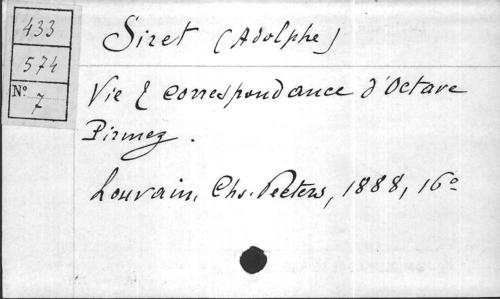 433
574
Nº 7
Siret (Adolphe)
Vie & correspondance d'Octave
Pirmez.
Louvain, Chs. Peeters, 1888, 16º